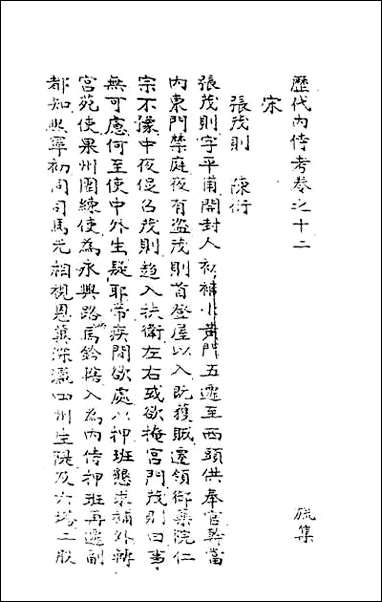 歷代內侍考卷之十二
毓集
宋
張茂則　陳衍
張茂則字平甫開封人初補小黃門五遷至西頭供奉官幹當
內東門禁庭夜有盜茂則首登屋以入既獲賊遷領御藥院仁
宗不豫中夜促召茂則趨入扶衛左右或欲掩宮門茂則曰事
無可慮何至使中外生疑耶帝疾間欲處以押班懇求補外轉
宮苑使果州團練使為永興路鈐轄入為內侍押班再遷副
都知熙寧初同司馬光相視恩冀深瀛四州生隄及六塔二股